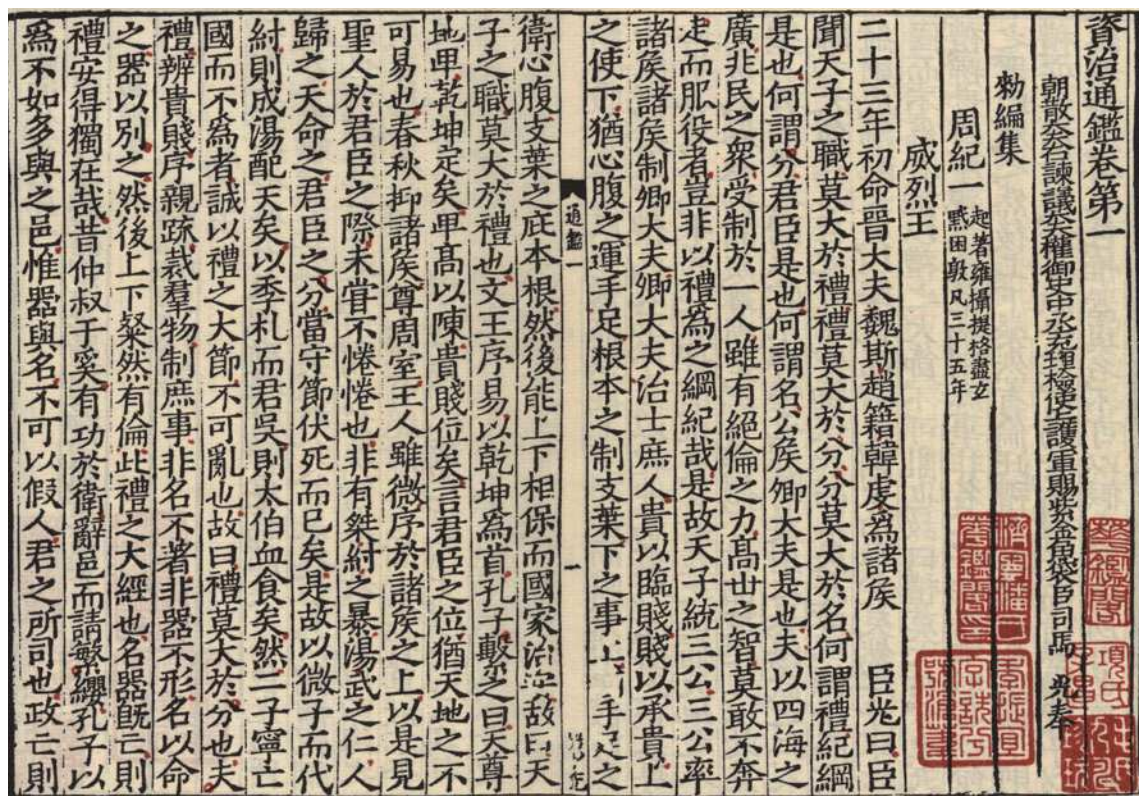 資治通鑑卷第一
朝散大夫右諫議大夫權御史中丞充理檢使上護軍賜紫金魚袋臣司馬 光奉
勑編集
周紀一 起著雍攝提格盡玄
黓困敦凡三十五年
威烈王
二十三年初命晉大夫魏斯趙籍韓虔爲諸侯 臣光曰臣
聞天子之職莫大於禮禮莫大於分分莫大於名何謂禮紀綱
是也何謂分君臣是也何謂名公侯卿大夫是也夫以四海之
廣兆民之衆受制於一人雖有絕倫之力髙丗之智莫敢不奔
走而服役者豈非以禮爲之綱紀哉是故天子統三公三公率
諸侯諸侯制卿大夫卿大夫治士庶人貴以臨賤賤以承貴上
之使下猶心腹之運手足根本之制支葉下之事上 手足之
通鑑一
一
衛心腹支葉之庇本根然後能上下相保而國家治 故曰天
子之職莫大於禮也文王序易以乾坤爲首孔子繫之曰天尊
地卑乾坤定矣卑髙以陳貴賤位矣言君臣之位猶天地之不
可易也春秋抑諸侯尊周室王人雖微序於諸侯之上以是見
聖人於君臣之際未甞不惓惓也非有桀紂之暴湯武之仁人
歸之天命之君臣之分當守節伏死而已矣是故以微子而代
紂則成湯配天矣以季札而君吳則太伯血食矣然二子寧亡
國而不爲者誠以禮之大節不可亂也故曰禮莫大於分也夫
禮辨貴賤序親踈裁羣物制庶事非名不著非器不形名以命
之器以別之然後上下粲然有倫此禮之大經也名器旣亡則
禮安得獨在哉昔仲叔于奚有功於衛辭邑而請繁纓孔子以
爲不如多與之邑惟器與名不可以假人君之所司也政亡則